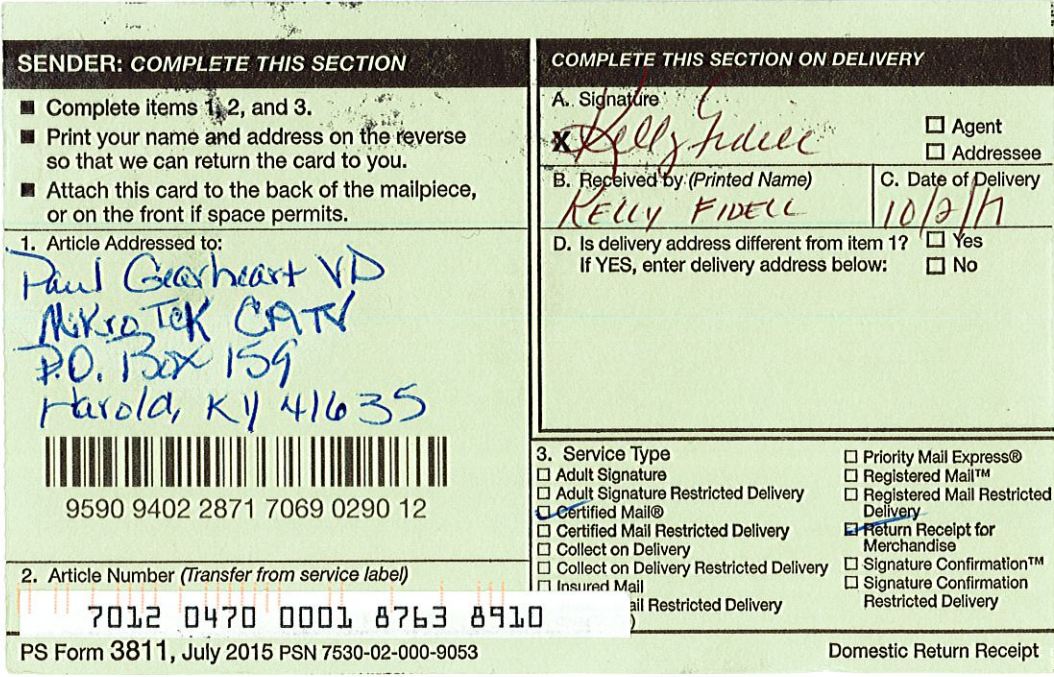 SENDER: COMPLETE THIS SECTION
■ Complete items 1, 2, and 3.
■ Print your name and address on the reverse
so that we can return the card to you.
■ Attach this card to the back of the mailpiece,
or on the front if space permits.
1. Article Addressed to:
Paul Gearheart VP
MikroTek CATV
P.O. Box 159
Harold, KY 41635
9590 9402 2871 7069 0290 12
2. Article Number (Transfer from service label)
7012 0470 0001 8763 8910
COMPLETE THIS SECTION ON DELIVERY
A. Signature
X Kelly Fidell
☐ Agent
☐ Addressee
B. Received by (Printed Name)
KELLY FIDELL
C. Date of Delivery
10/2/17
D. Is delivery address different from item 1? ☐ Yes
If YES, enter delivery address below: ☐ No
3. Service Type
☐ Adult Signature
☐ Adult Signature Restricted Delivery
☑ Certified Mail®
☐ Certified Mail Restricted Delivery
☐ Collect on Delivery
☐ Collect on Delivery Restricted Delivery
☐ Insured Mail
ail Restricted Delivery
)
☐ Priority Mail Express®
☐ Registered Mail™
☐ Registered Mail Restricted
Delivery
☑ Return Receipt for
Merchandise
☐ Signature Confirmation™
☐ Signature Confirmation
Restricted Delivery
PS Form 3811, July 2015 PSN 7530-02-000-9053
Domestic Return Receipt